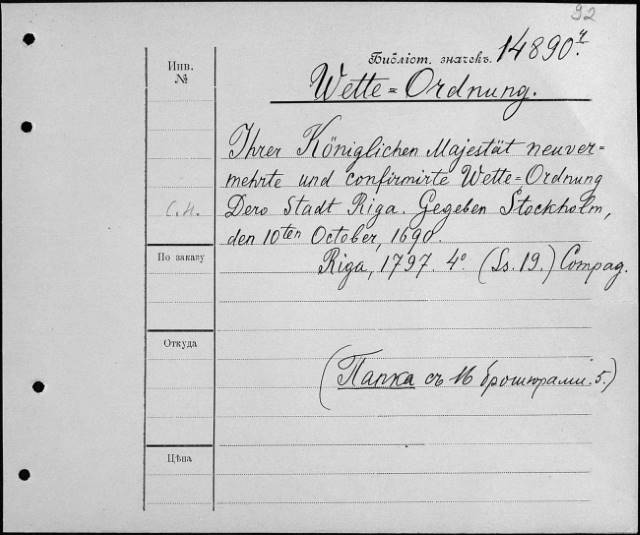 92
Библіот. значекъ. 14890 4.
Инв.
№
Wette=Ordnung.
Ihrer Königlichen Majestät neuver-
mehrte und confirmirte Wette=Ordnung
Dero Stadt Riga. Gegeben Stockholm,
den 10ten October, 1690.
Riga, 1797. 4° (Ss. 19.) Compag.
По заказу
Откуда
(Папка съ 16 брошюрами. 5.)
Цѣна